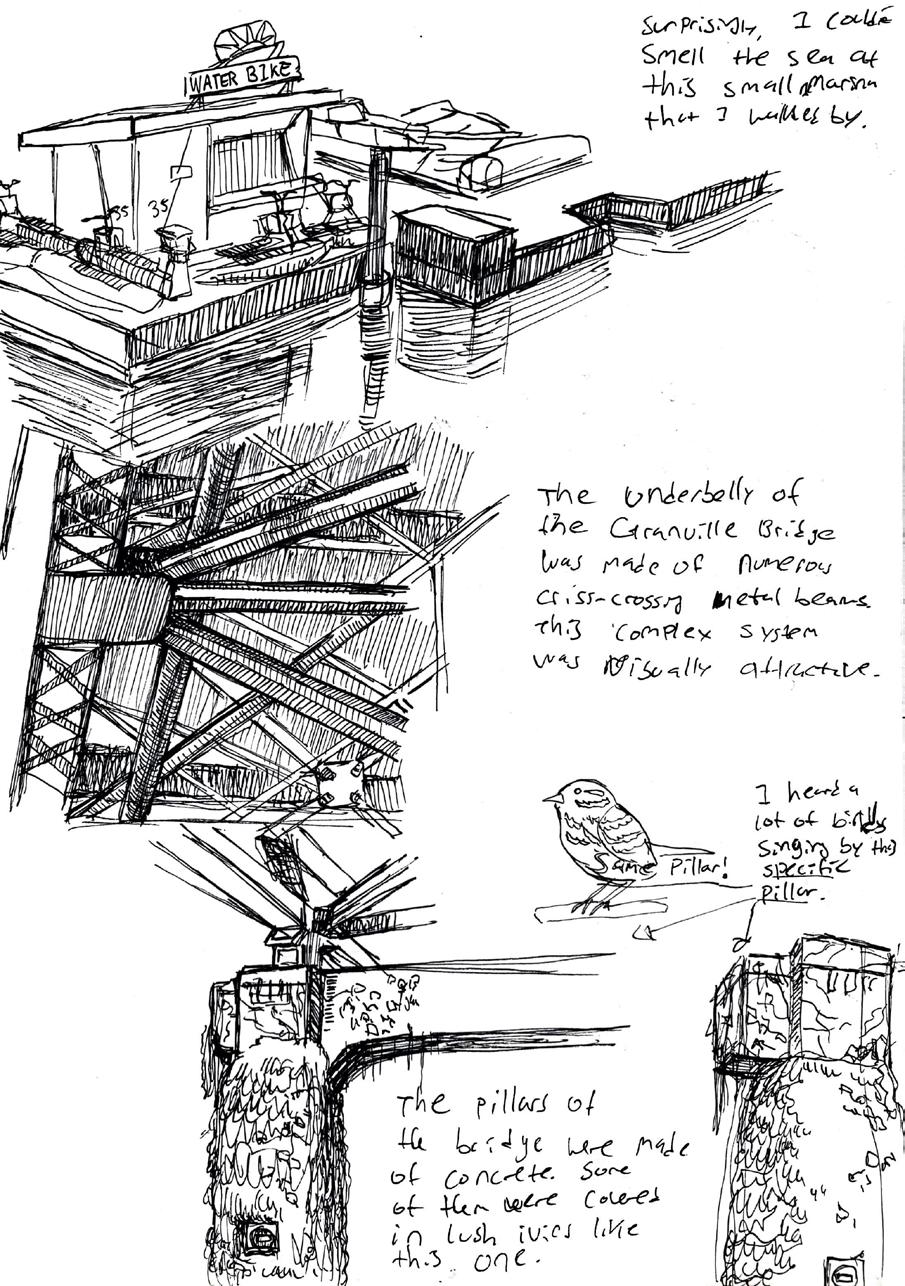 Surprisingly, I could
smell the sea at
this small marina
that I walked by.
WATER BIKE
35 35
The underbelly of
the Granville Bridge
was made of numerous
criss-crossing metal beams.
This complex system
was visually attractive.
I heard a
lot of birds
singing by this
specific
pillar.
Same Pillar!
The pillars of
the bridge were made
of concrete. Some
of them were covered
in lush ivies like
this one.